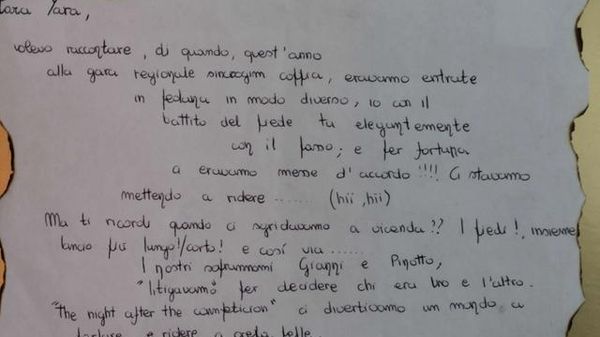 Cara Yara,
volevo raccontare, di quando, quest'anno
alla gara regionale sincrogim coppia, eravamo entrate
in pedana in modo diverso, io con il
battito del piede tu elegantemente
con il passo; e per fortuna
a eravamo messe d'accordo!!!! Ci stavamo
mettendo a ridere ....... (hii, hii)
Ma ti ricordi quando ci sgridavamo a vicenda?? I piedi!, insieme!
lancio più lungo!/corto! e così via ......
I nostri soprannomi Gianni e Pinotto,
"litigavamo" per decidere chi era l'uno e l'altro.
"The night after the competicion" ci divertivamo un mondo, a
e ridere a crepa pelle